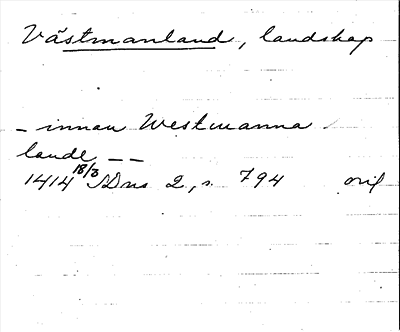 Västmanland, landskap
- innan Westmanna
lande - -
1414 18/3 SDns 2, s. 794 orig